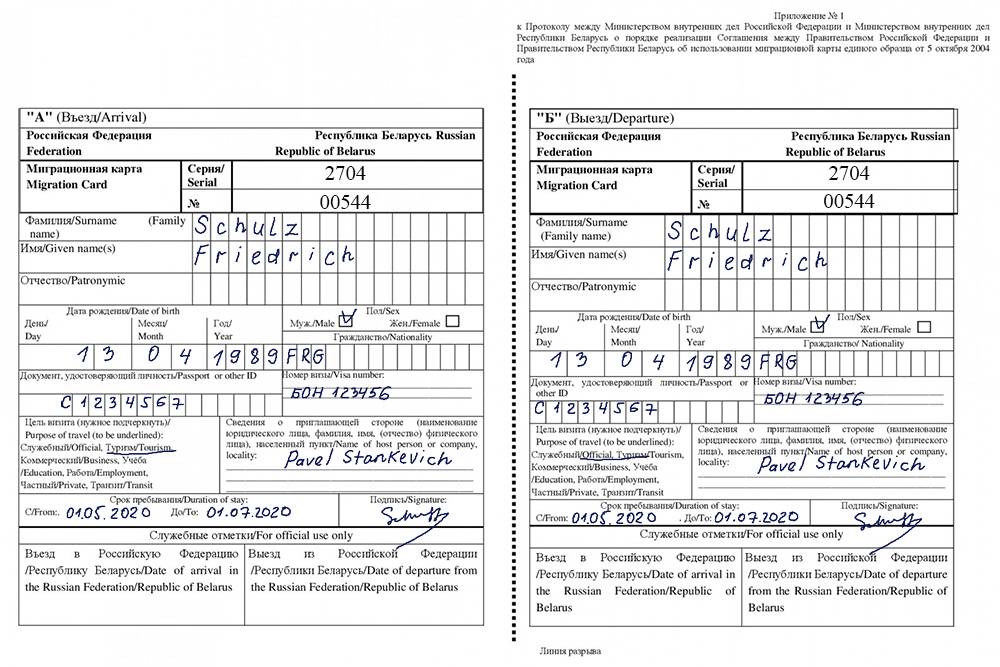 Приложение № 1
к Протоколу между Министерством внутренних дел Российской Федерации и Министерством внутренних дел
Республики Беларусь о порядке реализации Соглашения между Правительством Российской Федерации и
Правительством Республики Беларусь об использовании миграционной карты единого образца от 5 октября 2004
года
"А" (Въезд/Arrival)
Российская Федерация Республика Беларусь Russian
Federation Republic of Belarus
Миграционная карта
Migration Card
Серия/
Serial
2704
№
00544
Фамилия/Surname (Family
name)
Schulz
Имя/Given name(s)
Friedrich
Отчество/Patronymic
Дата рождения/Date of birth
Пол/Sex
День/
Day
Месяц/
Month
Год/
Year
Муж./Male
Жен./Female
Гражданство/Nationality
13 04 1989 FRG
Документ, удостоверяющий личность/Passport or other ID
Номер визы/Visa number:
БОН 123456
C1234567
Цель визита (нужное подчеркнуть)/
Purpose of travel (to be underlined):
Служебный/Official, Туризм/Tourism,
Коммерческий/Business, Учёба
/Education, Работа/Employment,
Частный/Private, Транзит/Transit
Сведения о приглашающей стороне (наименование
юридического лица, фамилия, имя, (отчество) физического
лица), населенный пункт/Name of host person or company,
locality:
Pavel Stankevich
Срок пребывания/Duration of stay:
С/From:. 01.05.2020 До/To: 01.07.2020
Подпись/Signature:
Служебные отметки/For official use only
Въезд в Российскую Федерацию
/Республику Беларусь/Date of arrival in
the Russian Federation/Republic of Belarus
Выезд из Российской Федерации
/Республики Беларусь/Date of departure from
the Russian Federation/Republic of Belarus
"Б" (Выезд/Departure)
Российская Федерация Республика Беларусь Russian
Federation Republic of Belarus
Миграционная карта
Migration Card
Серия/
Serial
2704
№
00544
Фамилия/Surname
(Family name)
Schulz
Имя/Given name(s)
Friedrich
Отчество/Patronymic
Дата рождения/Date of birth
Пол/Sex
День/
Day
Месяц/
Month
Год/
Year
Муж./Male
Жен./Female
Гражданство/ Nationality
13 04 1989 FRG
Документ, удостоверяющий личность/Passport or
other ID
Номер визы/Visa number:
БОН 123456
C1234567
Цель визита (нужное подчеркнуть)/
Purpose of travel (to be underlined):
Служебный/Official, Туризм/Tourism,
Коммерческий/Business, Учёба
/Education, Работа/Employment,
Частный/Private, Транзит/Transit
Сведения о приглашающей стороне (наименование
юридического лица, фамилия, имя, (отчество) физического
лица), населенный пункт/Name of host person or company,
locality:
Pavel Stankevich
Срок пребывания/Duration of stay:
С/From: 01.05.2020 . До/To: 01.07.2020
Подпись/Signature:
Служебные отметки/For official use only
Въезд в Российскую Федерацию
/Республику Беларусь/Date of arrival in
the Russian Federation/Republic of
Belarus
Выезд из Российской Федерации
/Республики Беларусь/Date of departure
from the Russian Federation/Republic of
Belarus
Линия разрыва